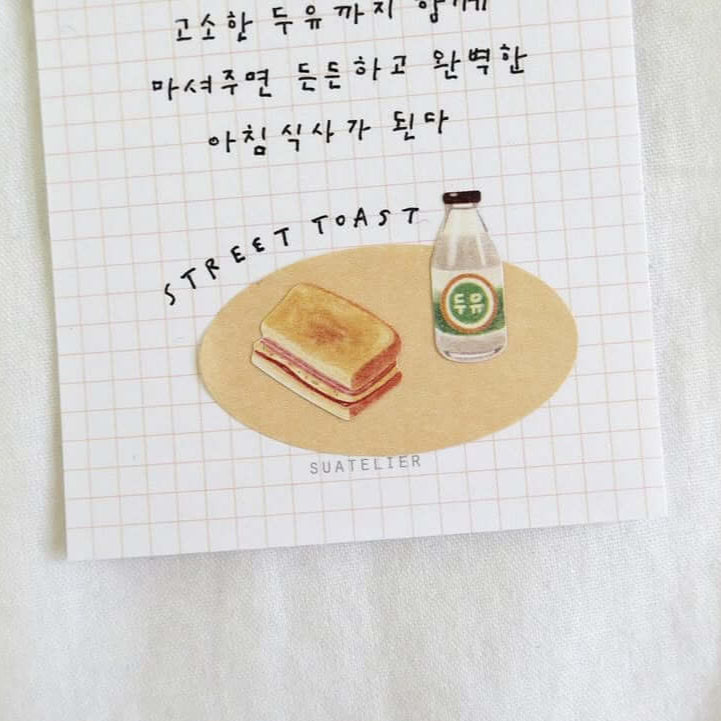 고소한 두유까지 함께
마셔주면 든든하고 완벽한
아침식사가 된다
STREET TOAST
두유
SUATELIER